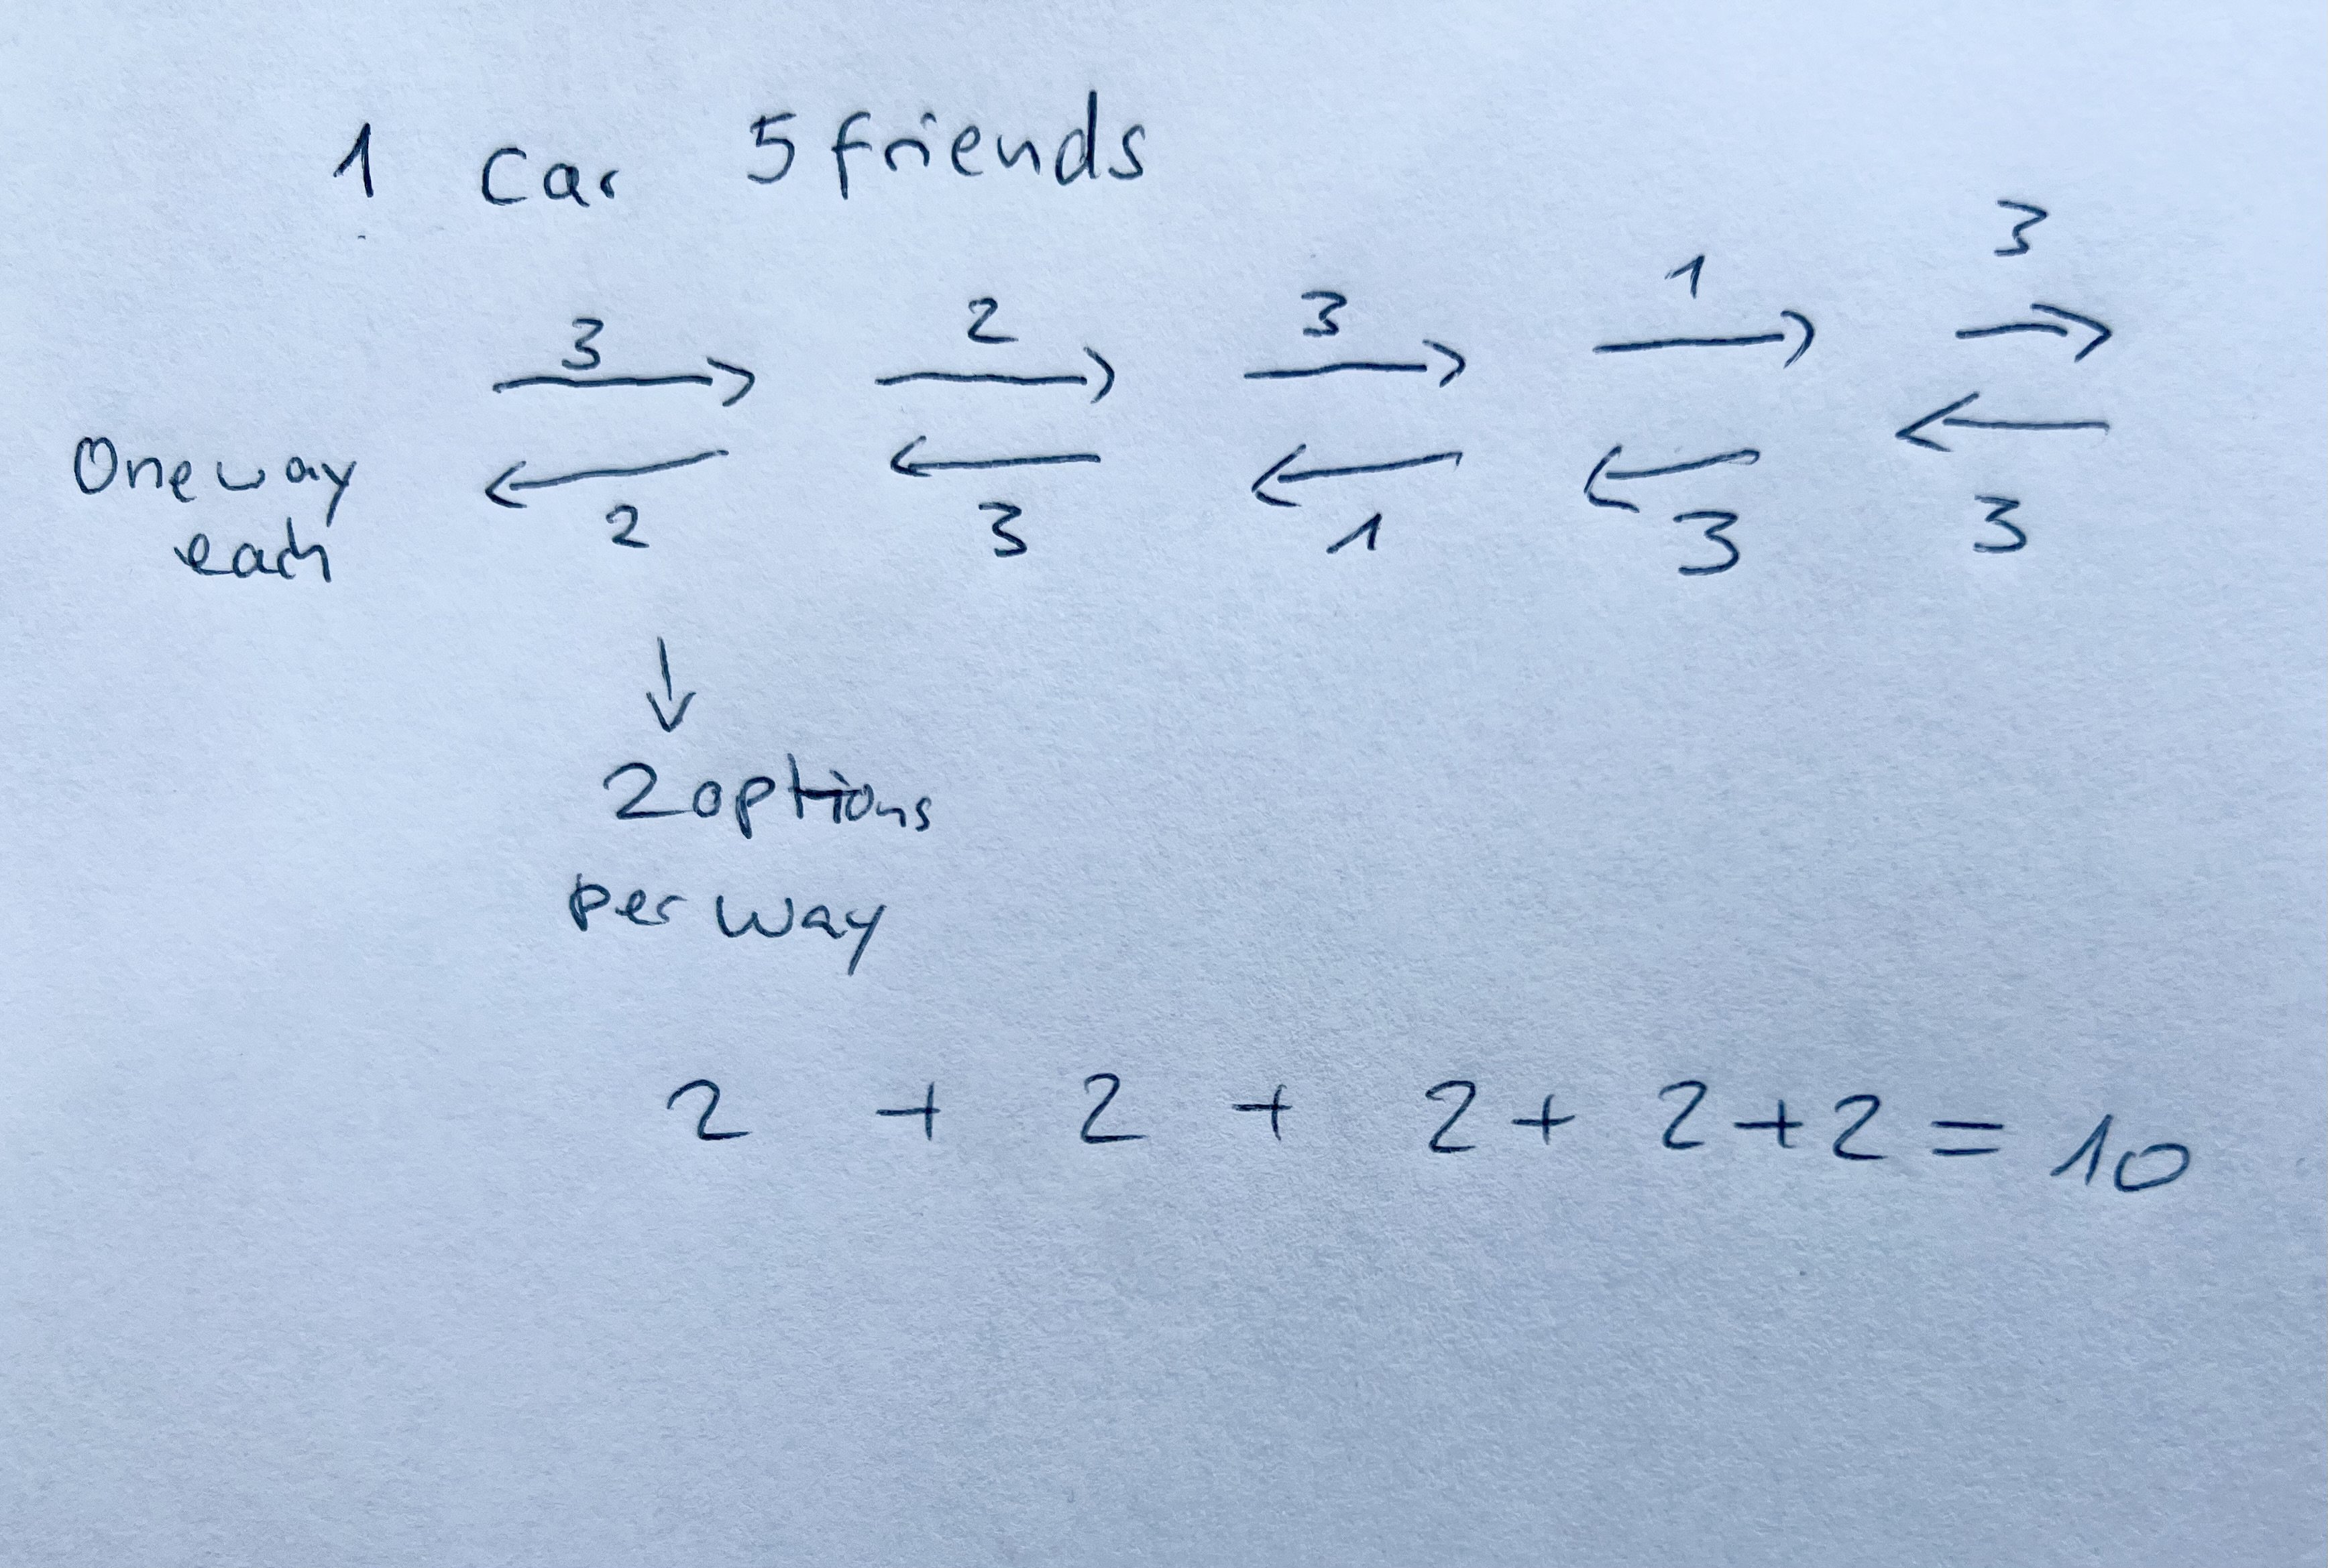 1 Car 5 friends
3 2 3 1 3
→ → → → →
One way ← ← ← ← ←
each 2 3 1 3 3
↓
2 options
per way
2 + 2 + 2 + 2 + 2 = 10